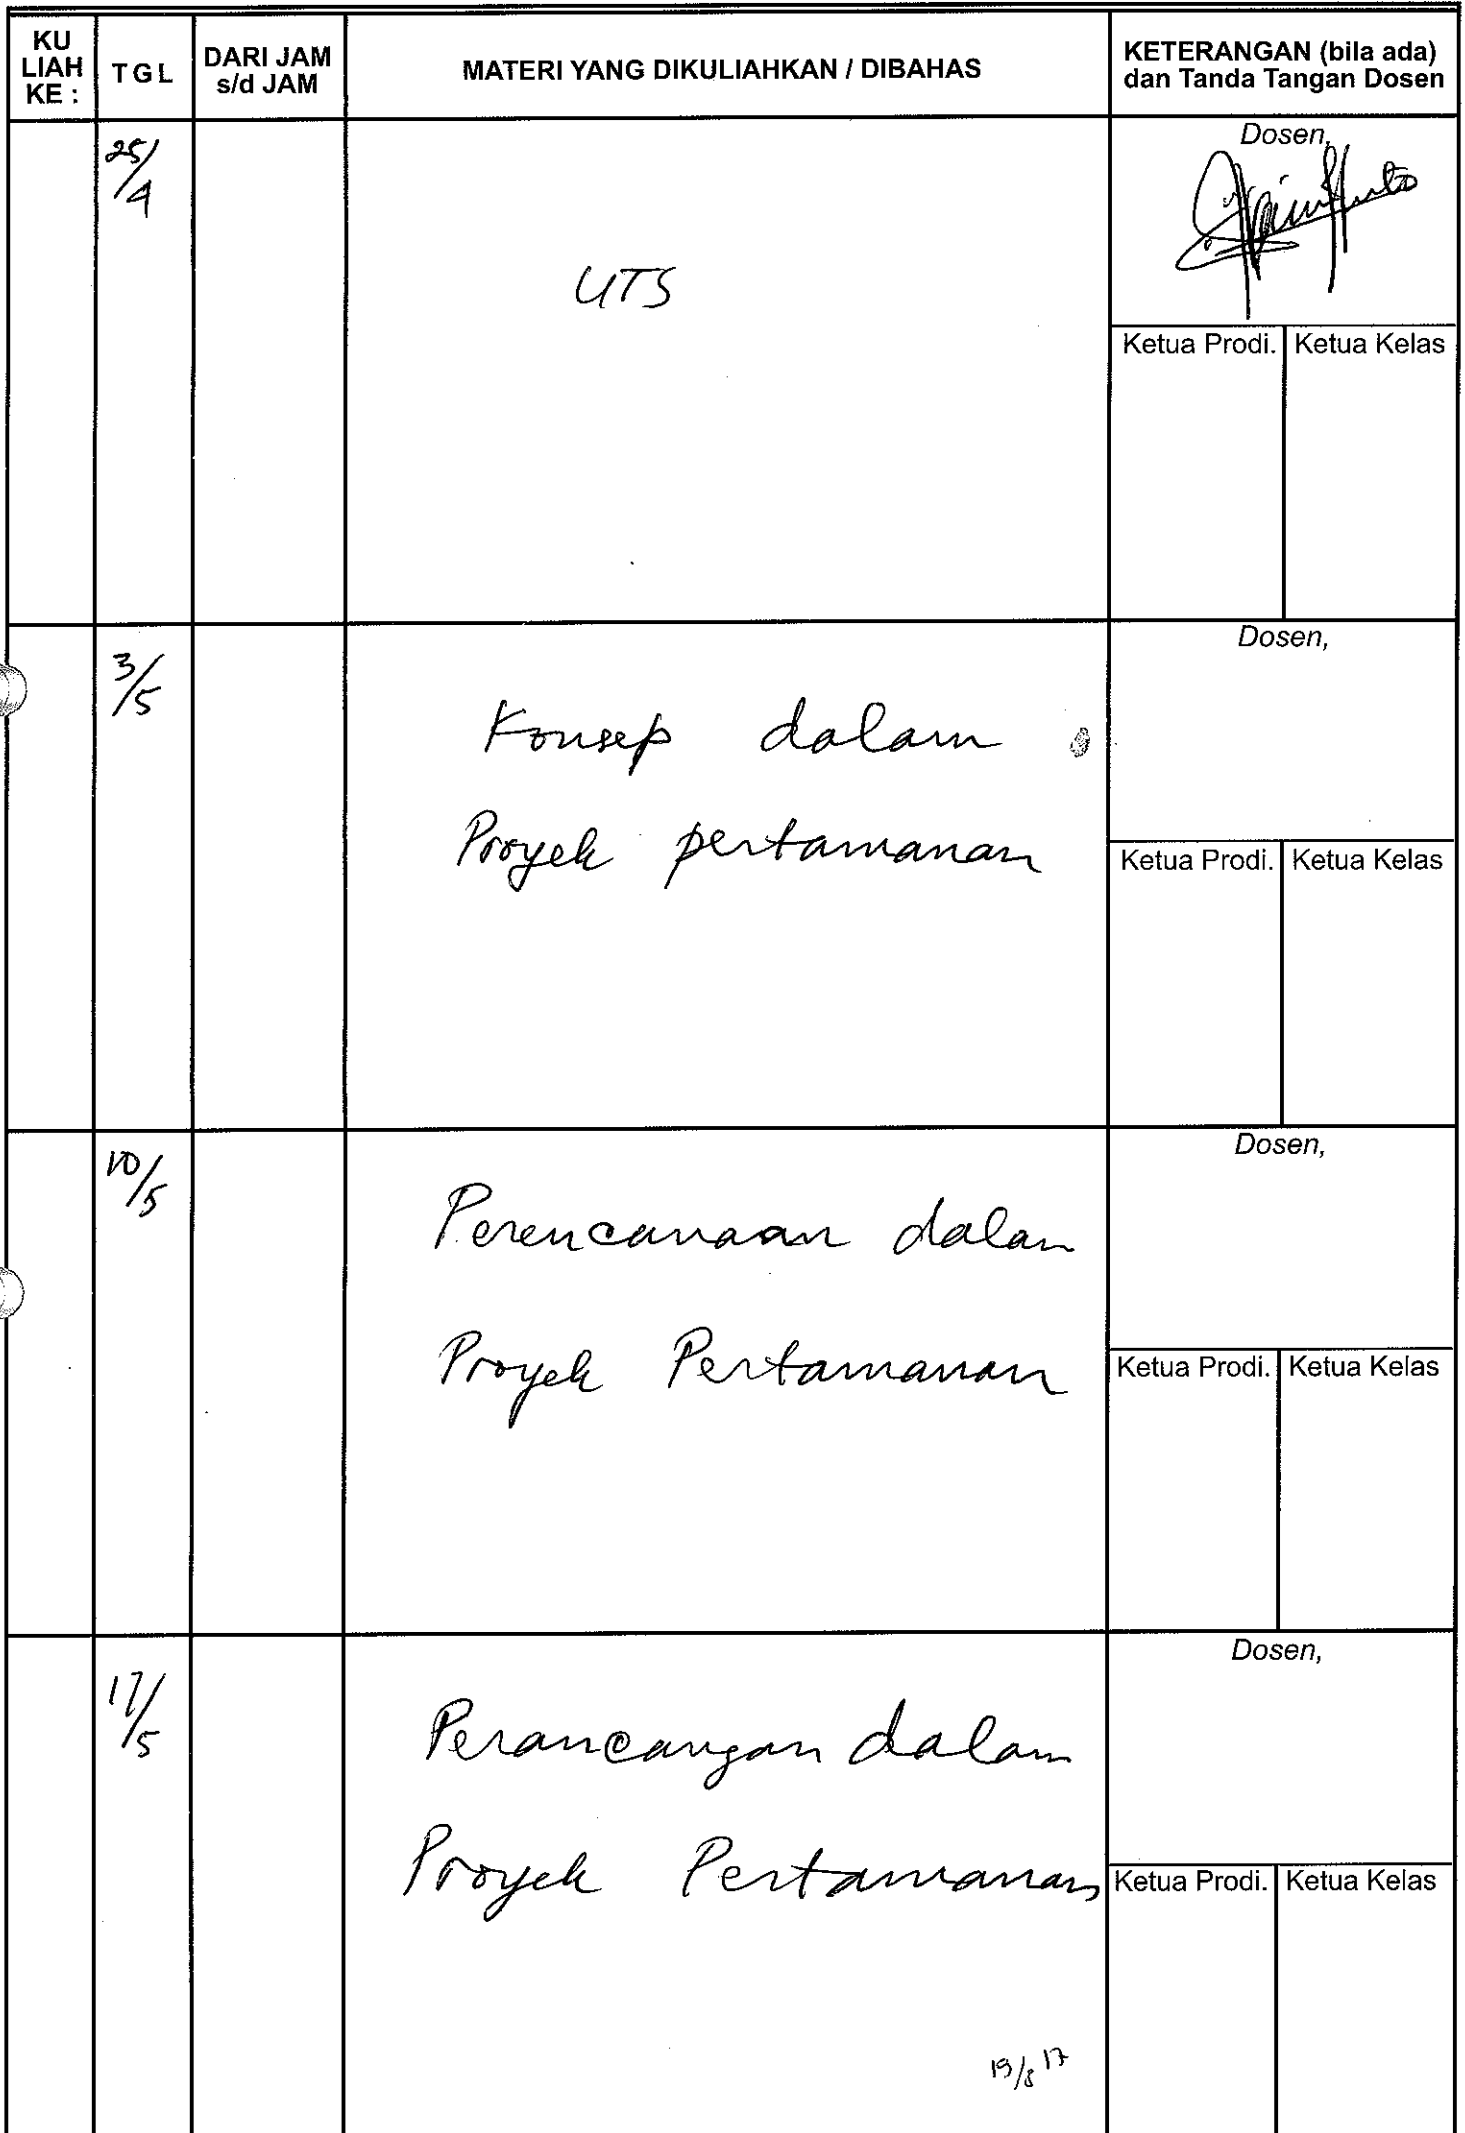 KU LIAH KE :
TGL
DARI JAM s/d JAM
MATERI YANG DIKULIAHKAN / DIBAHAS
KETERANGAN (bila ada) dan Tanda Tangan Dosen
25/4
UTS
Dosen,
Ketua Prodi.
Ketua Kelas
3/5
Konsep dalam
Proyek pertamanan
Dosen,
Ketua Prodi.
Ketua Kelas
10/5
Perencanaan dalam
Proyek Pertamanan
Dosen,
Ketua Prodi.
Ketua Kelas
17/5
Perancangan dalam
Proyek Pertamanan
Dosen,
Ketua Prodi.
Ketua Kelas